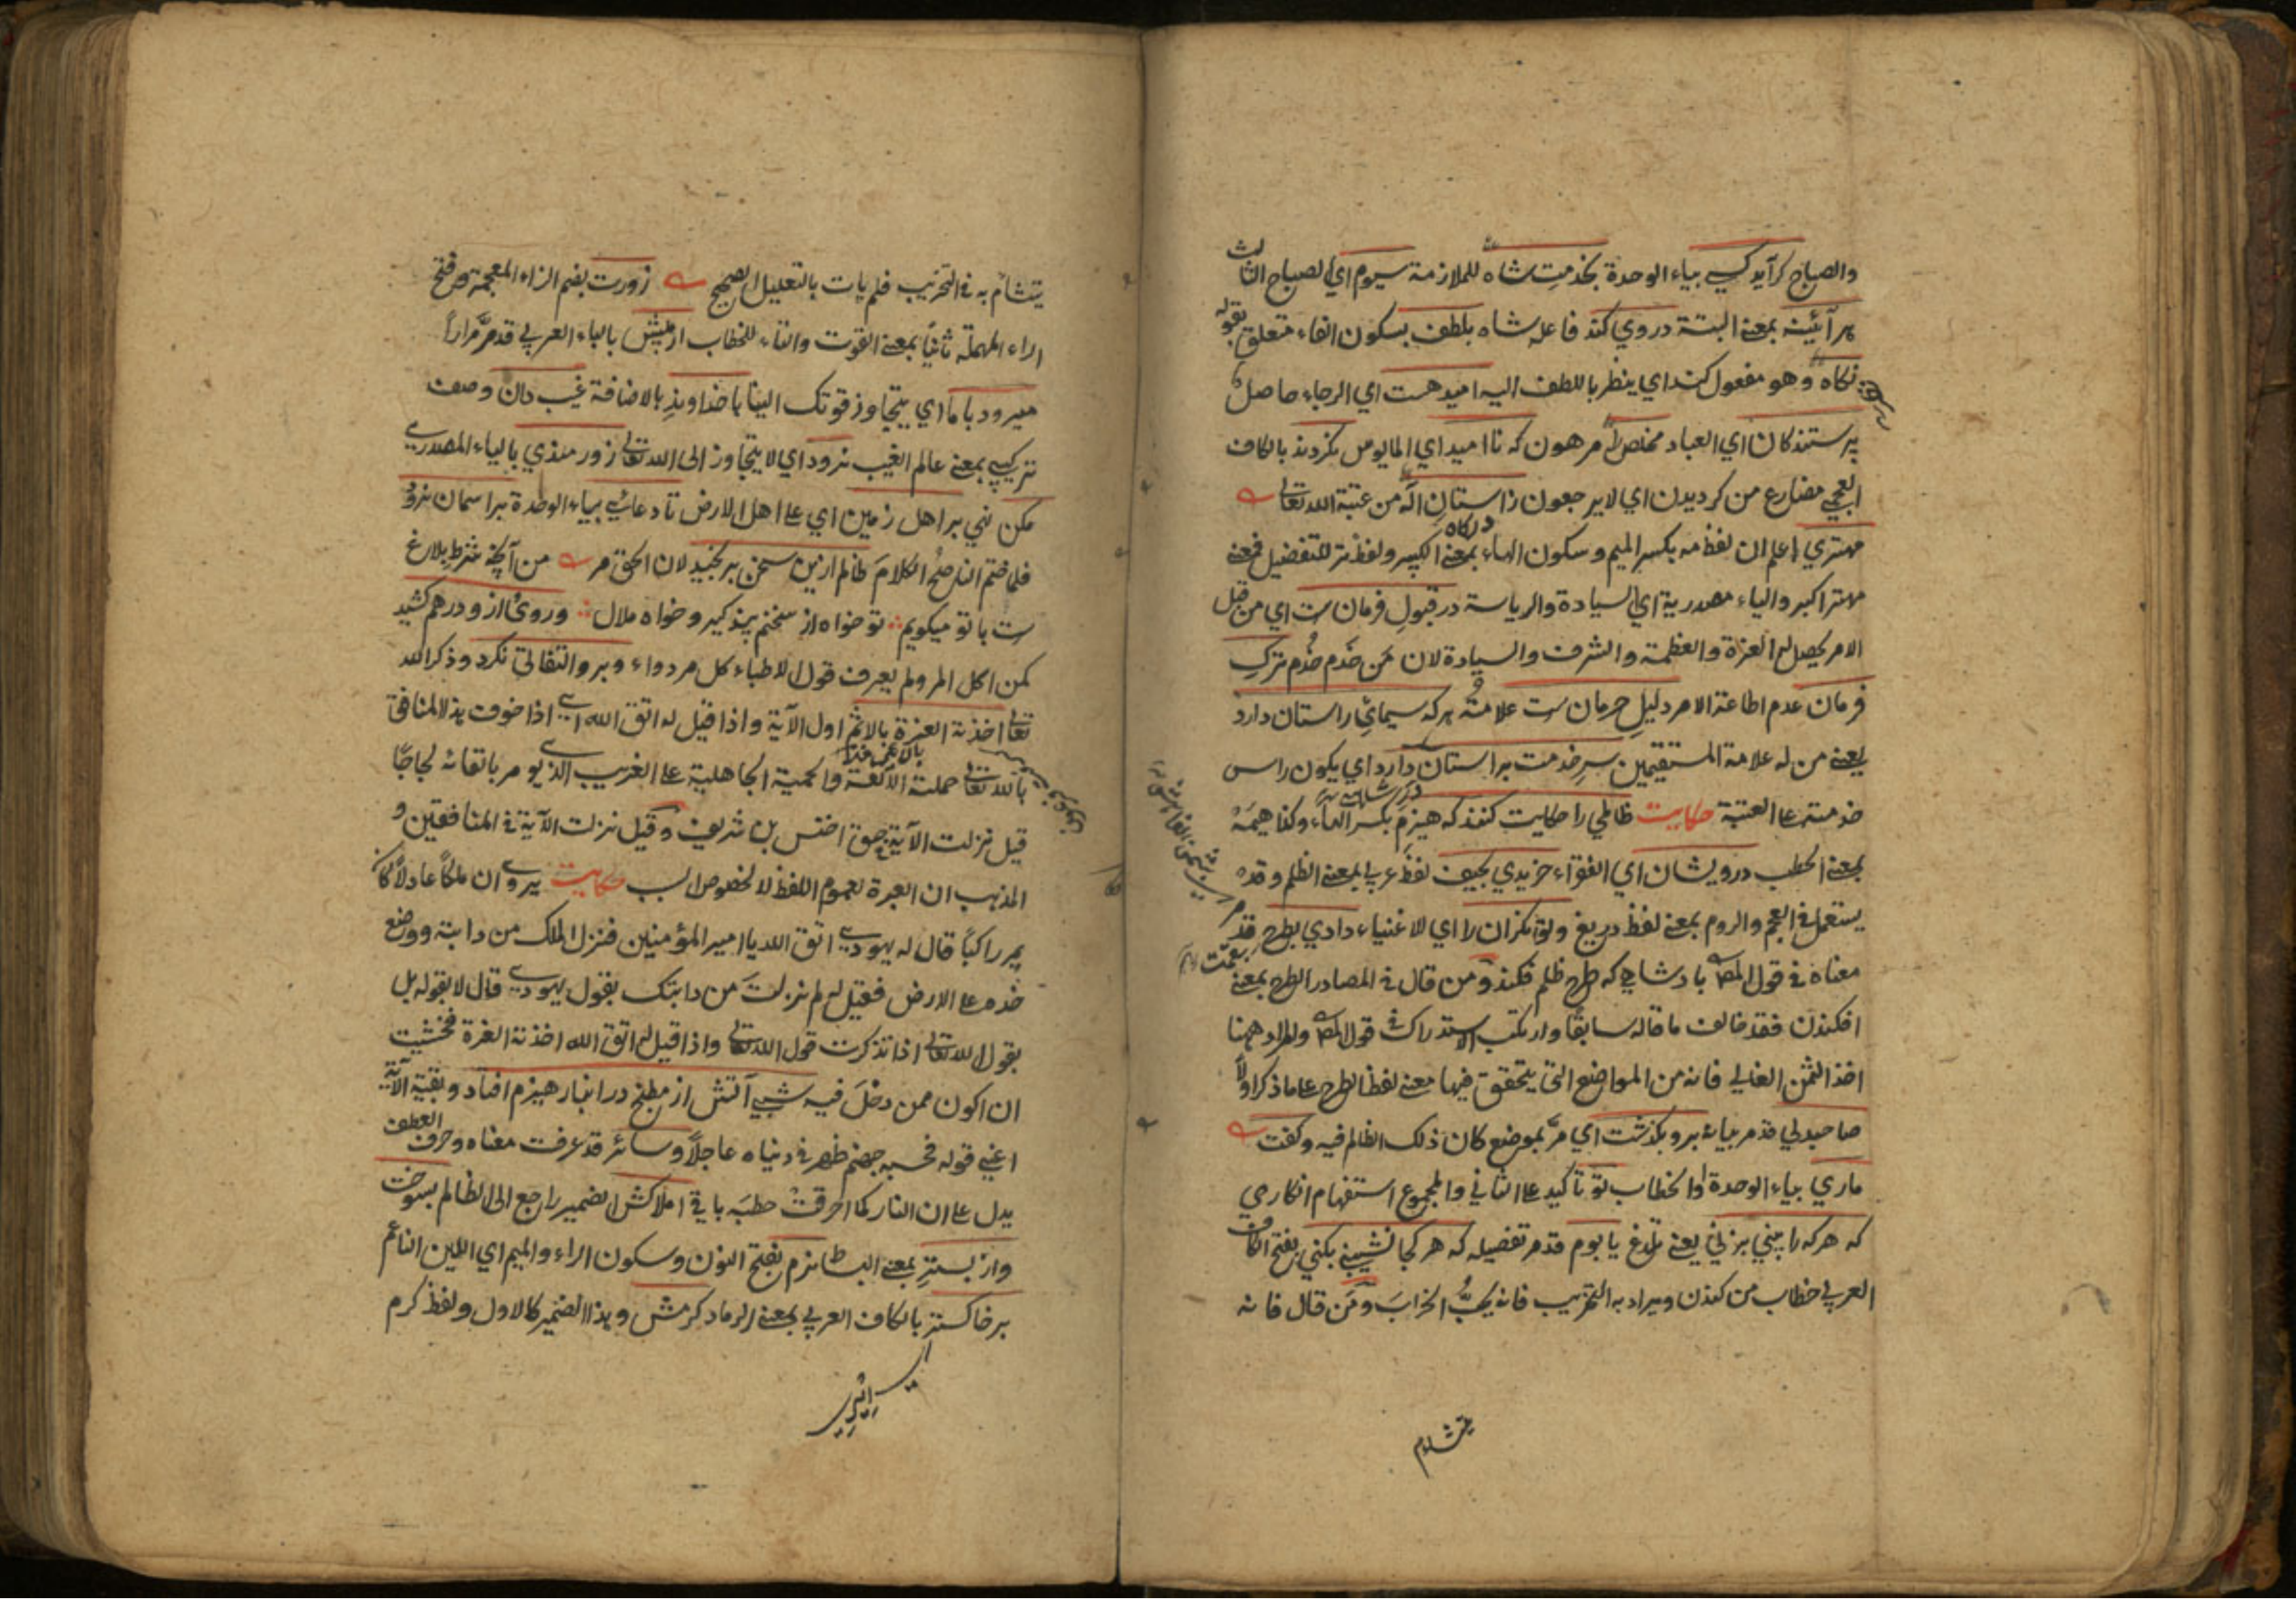 والصباح كر آيد كسي بياء الوحدة بخدمت شاه للملازمة سيوم اي لصباح الثالث
هر آئينه بمعنى البتة دروي كند فاعله شاه بلطف بسكون الفاء متعلق بقوله
نكاه وهو مفعول كند اي ينظر باللطف اليه اميد هست اي الرجاء حاصل
پرستندكان اي العباد مخلص را مرهون كه نا اميد اي المايوس نكردند بالكاف
العجمي مضارع من كرديدن اي لا يرجعون ز استان اله من عتبة الله تعالى
مهتري اعلم ان لفظ مه بكسر الميم وسكون الهاء بمعنى الكبير ولفظ تر للتفضيل فمعنى
مهتر اكبر والياء مصدرية اي السيادة والرياسة در قبول فرمان ست اي من قبل
الامر يحصل له العزة والعظمة والشرف والسيادة لان مَن خَدم خُدم ترك
فرمان عدم اطاعة الامر دليل حرمان ست علامته هر كه سيماي راستان دارد
يعنى من له علامة المستقيمين سر خدمت بر استان دارد اي يكون راس
خدمته على العتبة حكايت ظالمي را حكايت كنند كه هيزم بكسر الهاء وكذا هيمه
بمعنى الحطب درويشان اي الفقراء خريدي بحيف لفظ عربي بمعنى الظلم وقد
يستعمل في العجم والروم بمعنى لفظ دريغ وتوانكران را اي الاغنياء دادي بطرح قد مر
معناه في قول المص بادشاهي كه طرح ظلم فكند ومن قال في المصادر الطرح بمعنى
افكندن فقد خالف ما قاله سابقا وارتكب الاستدراك في قول المص والمراد ههنا
اخذ الثمن الغالي فانه من المواضع التي يتحقق فيها معنى لفظ الطرح على ما ذكر اولا
صاحبدلي قد مر بيانه برو بكذشت اي مرّ بموضع كان ذلك الظالم فيه وكفت
ماري بياء الوحدة او الخطاب تو تاكيد على الثاني والمجموع استفهام انكاري
كه هر كه را بيني بزني يعنى تلدغ يا بوم قد مر تفصيله كه هر كجا نشيني بكني بفتح الكاف
العربي خطاب من كندن ويراد به التخريب فانه يحبّ الخراب ومَن قال فانه
يتشاءم
يتشأم به في التخريب فلم يات بالتعليل الصحيح زورت بضم الزاء المعجمة وفتح
الراء المهملة ثانيا بمعنى القوت والتاء للخطاب ار پيش بالباء العربي قد مرّ مرارا
ميرود با ما اي يتجاوز قوتك الينا با خداوند بالاضافة غيب دان وصف
تركيبي بمعنى عالم الغيب نرود اي لا يتجاوز الى الله تعالى زورمندي بالياء المصدري
مكن نهي بر اهل زمين اي على اهل الارض تا دعائي بياء الوحدة بر اسمان نرود
فلما ختم الناصح الكلام ظالم ازين سخن برنجيد لان الحق مر من آنچه شرط بلاغ
ست با تو ميكويم تو خواه از سخنم پند كير و خواه ملال وروي از و درهم كشيد
كمن اكل المر ولم يعرف قول الاطباء كل مر دواء وبرو التفاتي نكرد وذكر الله
تعالى اخذته العزة بالاثم اول الآية واذا قيل له اتق الله اي اذا خوف هذا المنافق
بالله تعالى حملته الانفة والحمية الجاهلية على الغريب الذي يومر باتقائه لجاجا
قيل نزلت الآية في حق اخنس بن شريف وقيل نزلت الآية في المنافقين و
المذهب ان العبرة لعموم اللفظ لا لخصوص السبب حكايت يروى ان ملكا عادلا كان
يمر راكبا قال له يهودي اتق الله يا امير المؤمنين فنزل الملك من دابته ووضع
خده على الارض فقيل له لم نزلت من دابتك بقول يهودي قال لا بقوله بل
بقول الله تعالى اذا تذكرت قول الله تعالى واذا قيل له اتق الله اخذته العزة فخشيت
ان اكون ممن دخل فيه شبي آتش از مطبخ در انبار هيزم افتاد وبقية الآية
اعني قوله فحسبه جهنم ظهر في دنياه عاجلا وسائر قد عرفت معناه وحرف العطف
يدل على ان النار كما احرقت حطبه باقي املاكش الضمير راجع الى الظالم بسوخت
واز بستر بمعنى البساط نرم بفتح النون وسكون الراء والميم اي اللين الناعم
بر خاكستر بالكاف العربي بمعنى الرماد كرمش وهذا الضمير كالاول ولفظ كرم